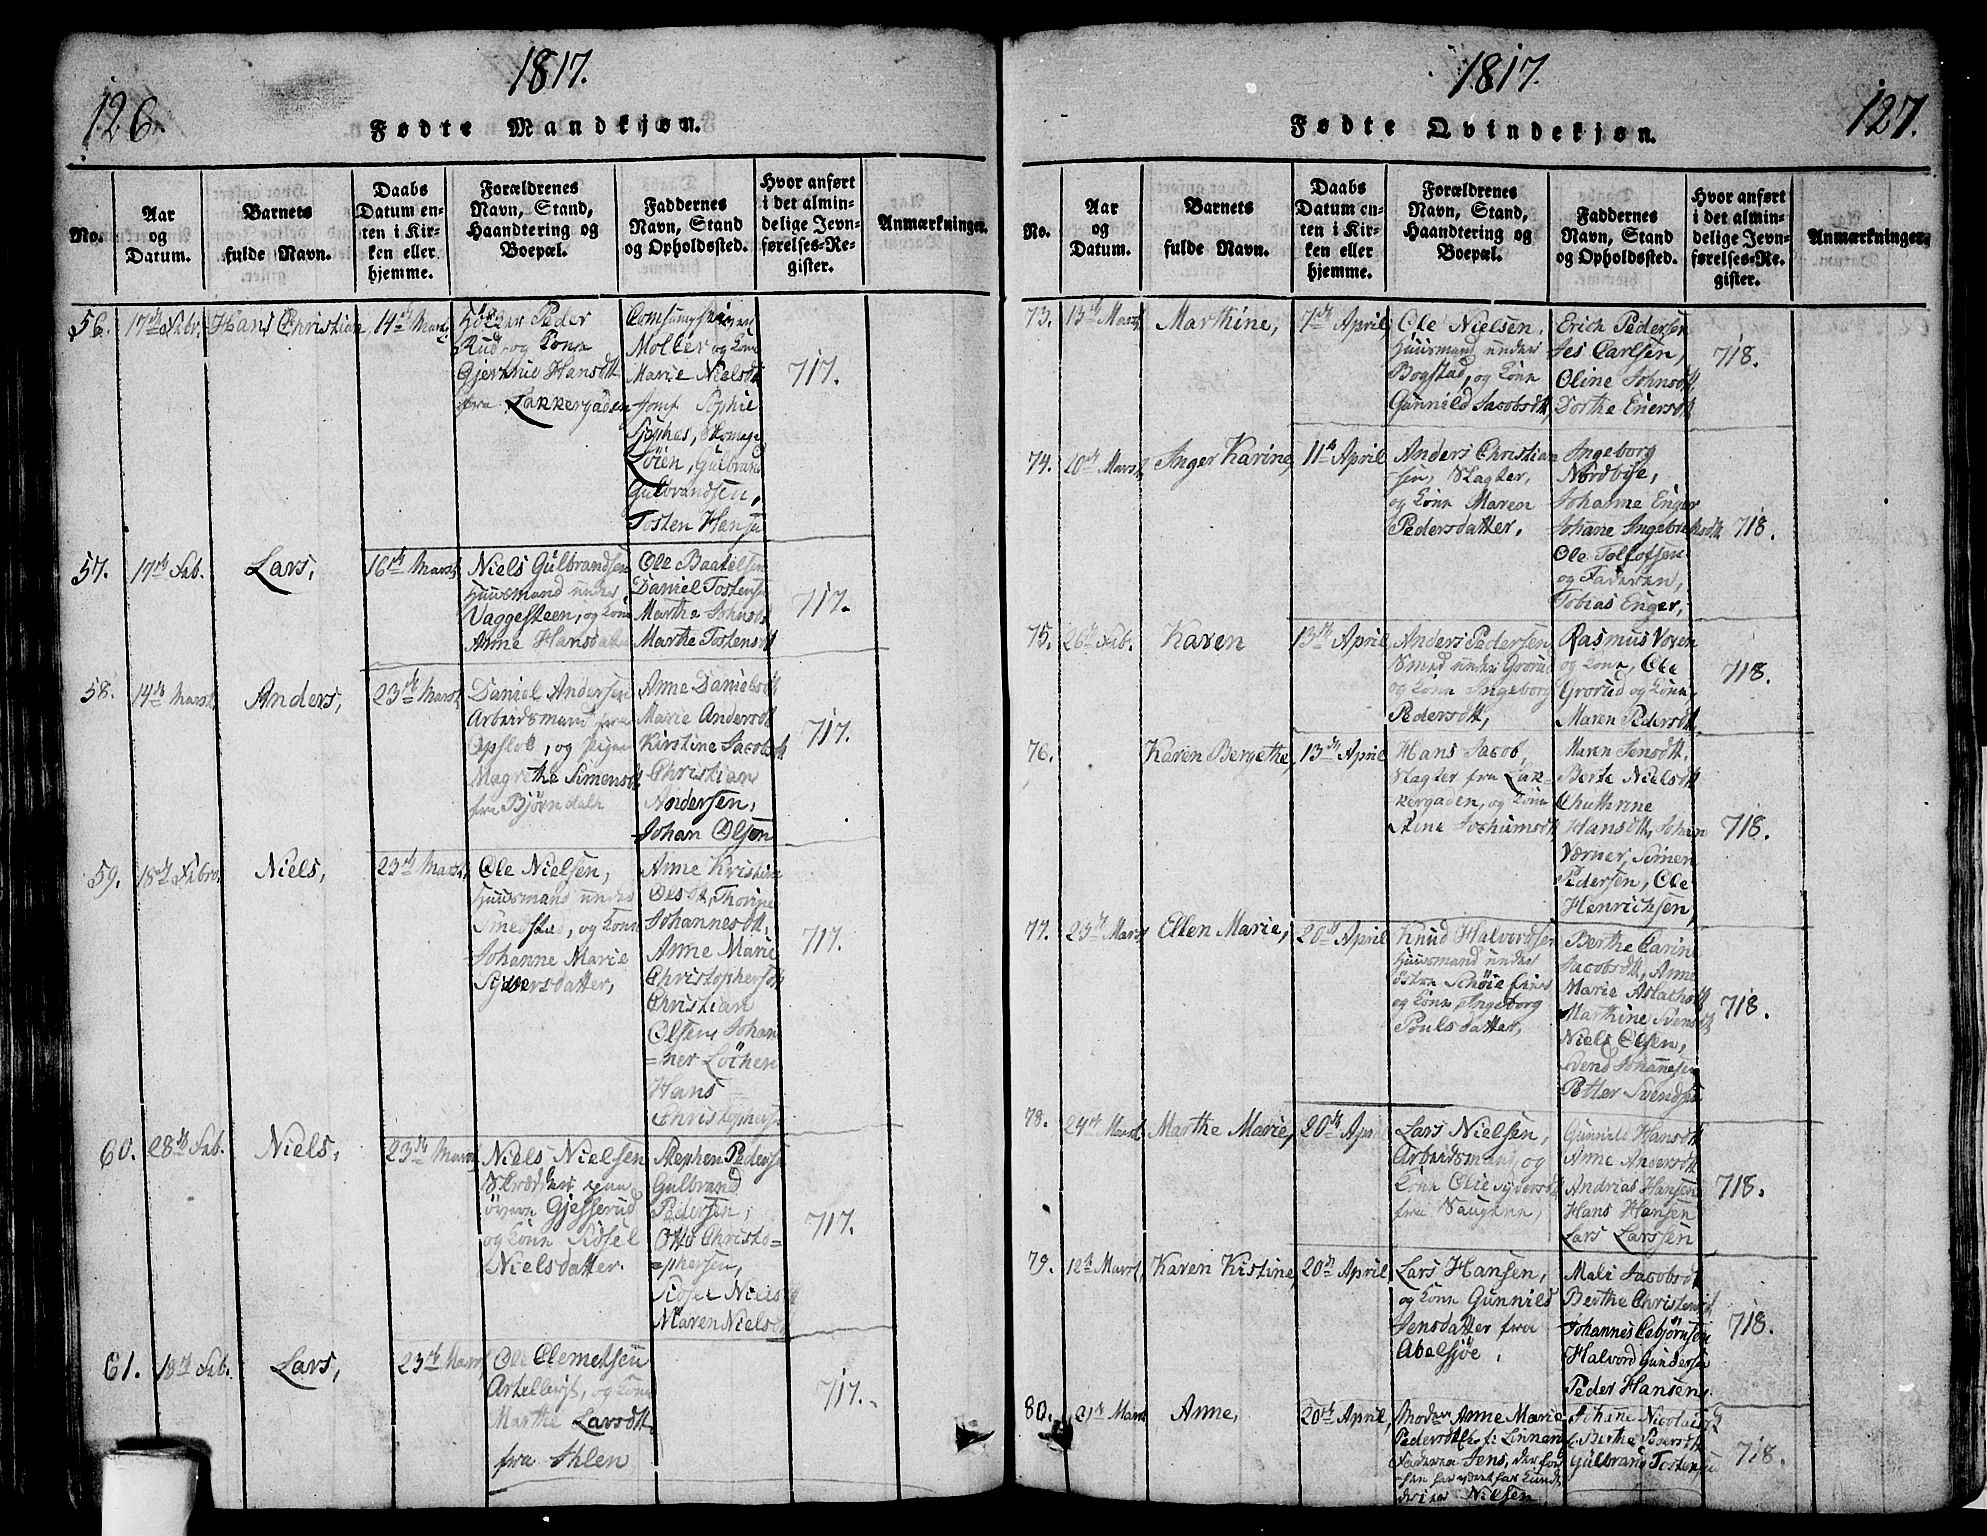 126.
1817.
Fødte Mandkjøn.
No.
Aar
og
Datum.
Barnets
fulde Navn.
Daabs
Datum en-
ten i Kir-
ken eller
hjemme.
Forældrenes
Navn, Stand,
Haandtering og
Boepæl.
Faddernes
Navn, Stand
og Opholdssted.
Hvor anført
i det almin-
delige Jevn-
førelses-Re-
gister.
Anmærkninger.
56.
17de Febr.
Hans Christian,
14de Marts
Peder
Rud, og Kone
Gjertrud Hansdtt
fra Lakkergaden
Møller og Kone
Marie Nielsdtt
Jomf Sophie
Løien, Gulbrand
Gulbrandsen,
Tosten Hansen
717.
57.
17de Feb.
Lars,
16de Marst,
Niels Gulbrandsen
Huusmand under
Vaggesteen, og Kone
Anne Hansdatter
Ole Baatelsen
Daniel Tostensen
Marthe Johnsdt
Marthe Tostensdt
717.
58.
14de Marst
Anders,
23de Marst,
Daniel Andersen
Arbeidsmand fra
Opslot, og Pigen
Magrethe Simensdt
fra Bjørndalen
Anne Danielsdtt
Marie Andersdt
Kirstine Jacobsdt
Christian
Andersen,
Johan Olsen
717.
59.
18de Febr.
Niels,
23de Marst,
Ole Nielsen,
Huusmand under
Smedstad, og Kone
Johanne Marie
Syversdatter,
Anne Kristine
Olsdt, Thorine
Johannesdtt,
Anne Marie
Christophersdt
Christian
Olsen, Johan
=ner Løchen
Hans
Christophersen
717.
60.
28de Feb.
Niels,
23de Marst
Niels Nielsen
Skrædder paa
øvern Gjesserud
og Kone Sidsel
Nielsdatter.
Stephen Peders
Gulbrand
Pedersen,
Otto Christo=
=phersen,
Sidsel Nielsdtt
Maren Nielsdt
717.
61.
18de Feb.
Lars,
23de Marst,
Ole Clemetsen
Artellerist, og Kone
Marthe Larsdtt
fra Ahlen
717.
1817.
127.
Fødte Qvindekjøn.
No.
Aar
og
Datum.
Barnets
fulde Navn.
Daabs
Datum en-
ten i Kir-
ken eller
hjemme.
Forældrenes
Navn, Stand,
Haandtering og
Boepæl.
Faddernes
Navn, Stand
og Opholdssted.
Hvor anført
i det almin-
delige Jevn-
førelses-Re-
gister.
Anmærkninger.
73.
13de Marst,
Marthine,
7de April,
Ole Nielsen,
Huusmand under
Bogstad, og Kone
Gunnild Jacobsdtt,
Erich Pedersen
Jes Carlsen,
Oline Johnsdtt
Dorthe Enersdt
718.
74.
10de Marst,
Inger Karine,
11de April,
Anders Christian
sen, Slagter,
og Kone Maren
Pedersdatter,
Ingeborg
Nordbye,
Johanne Enger
Johane Ingebretsdt
Ole Tollofsen
og Faderen,
Tobias Enger,
718.
75.
26de Feb.
Karen
13de April,
Anders Pedersen
Smed under Grorud
og Kone Ingeborg
Pedersdtt,
Rasmus Voxen
og Kone, Ole
Grorud og Kone
Maren Pedersdtt
718.
76.
Karen Bergethe,
13de April,
Hans Jacob,
Slagter fra Lak-
kergaden, og Kone
Anne Jochumsdt,
Maren Jensdtt
Berte Nielsdt
Chathrine
Hansdtt, Johan
Værner, Simen
Pedersen, Ole
Henrichsen,
718.
77.
23de Marst,
Ellen Marie,
20de April,
Knud Halvordsen
Huusmand under
Østre Schøie
og Kone Ingeborg
Poulsdatter,
Berthe Carine
Jacobsdtt, Anne
Marie Aslachsdtt
Marthine Svensdt
Niels Olsen,
Svend Johannesen
Petter Svendsen
718.
78.
24de Marst
Marthe Marie,
20de April
Lars Nielsen,
Arbeidsmand, og
Kone Olie Syversdt
fra Saugene,
Gunnild Hansdtt
Anne Andersdtt
Andrias Hansen
Hans Hansen
Lars Larssen
718.
79.
12de Marst,
Karen Kistine,
20de April,
Lars Hansen,
og Kone Gunnild
Jensdatter fra
Abelsjøe,
Mali Jacobsdt
Berthe Christensdt
Johannes Esbjørnsen
Halvord Gundersen
Peder Hansen
718.
80.
21de Marst
Anne,
20de April,
Moder Anne Marie
Faderen Jens,
Nielsen
Johane Nicolaisdt
Berthe Pedersdtt
Gulbrand Tostensen
718.